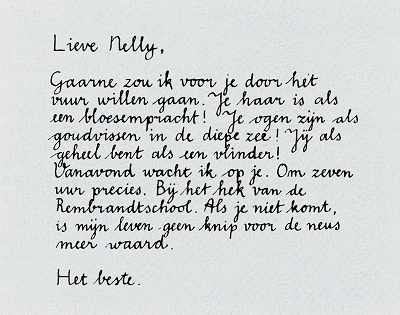 Lieve Nelly,
Gaarne zou ik voor je door het
vuur willen gaan. Je haar is als
een bloesempracht! Je ogen zijn als
goudvissen in de diepe zee! Jij als
geheel bent als een vlinder!
Vanavond wacht ik op je. Om zeven
uur precies. Bij het hek van de
Rembrandtschool. Als je niet komt,
is mijn leven geen knip voor de neus
meer waard.
Het beste.